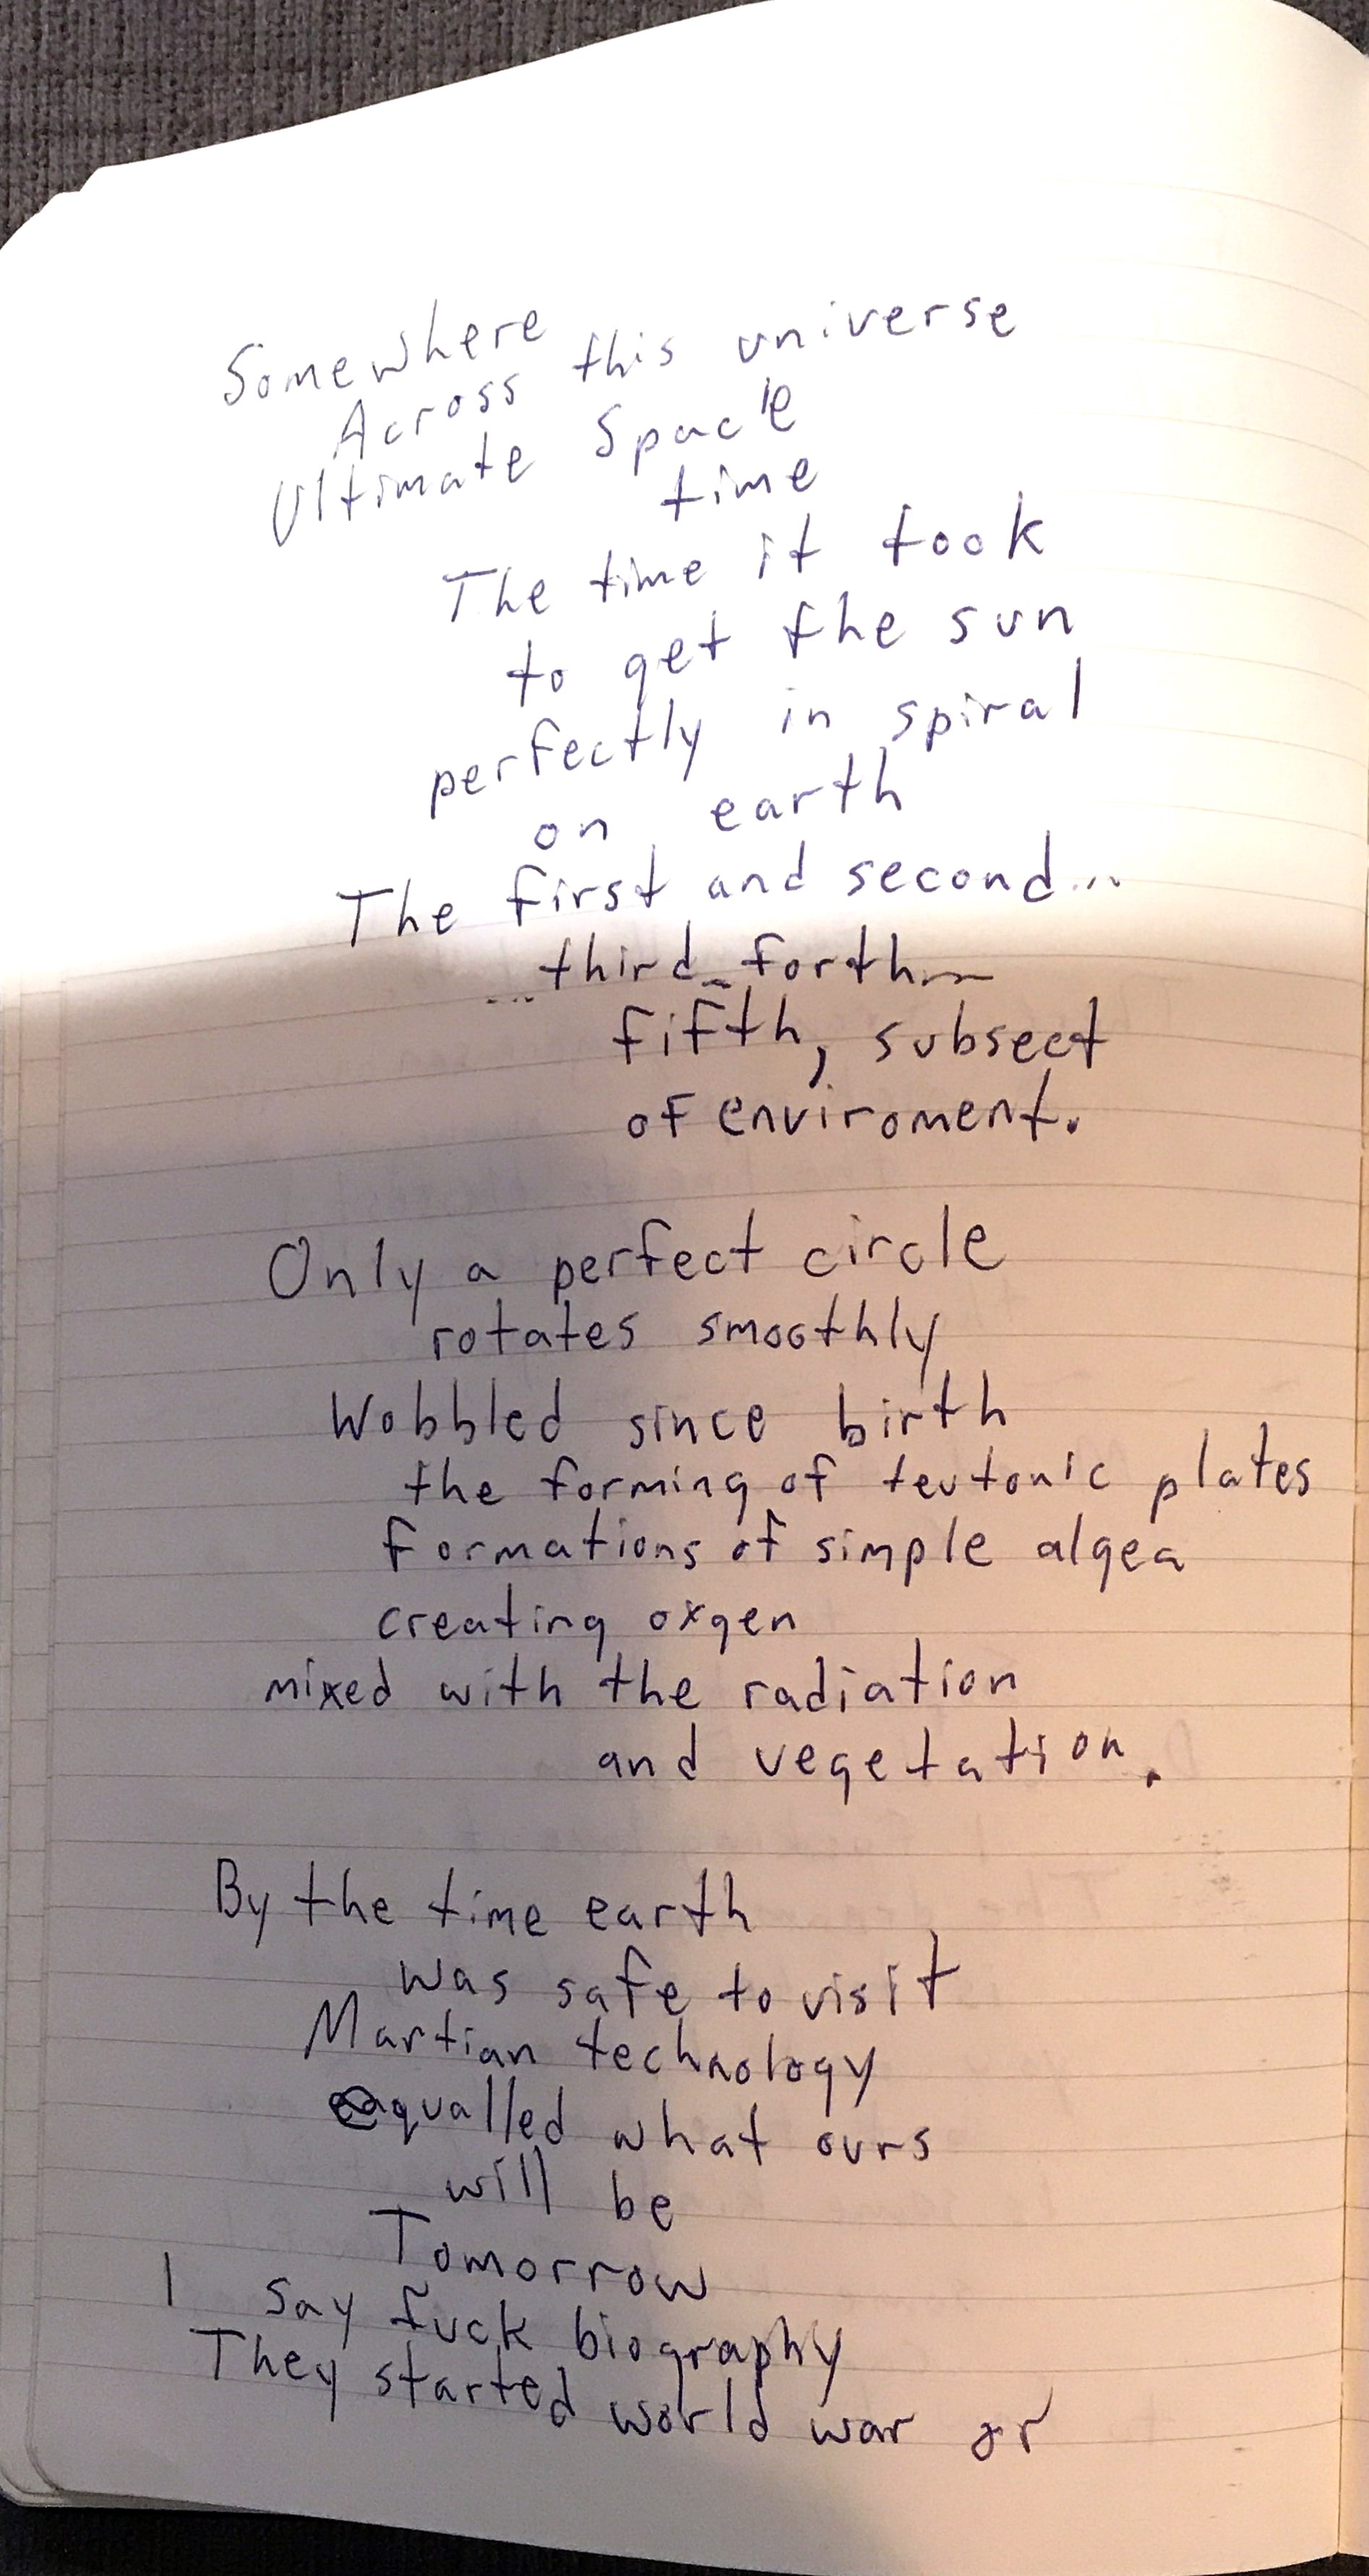 Somewhere
Across this universe
Ultimate Space
time
The time it took
to get the sun
perfectly in spiral
on earth
The first and second...
...third - forth
fifth, subsect
of enviroment.
Only a perfect circle
rotates smoothly
Wobbled since birth
the forming of teutonic plates
formations of simple algea
creating oxgen
mixed with the radiation
and vegetation.
By the time earth
was safe to visit
Martian technology
equalled what ours
will be
Tomorrow
I say fuck biography
They started world war or